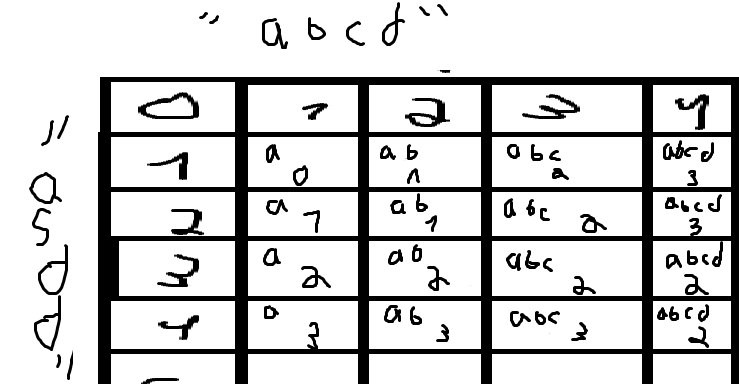 "abcd"
"asdd"
0 1 2 3 4
1 a 0 ab 1 abc 2 abcd 3
2 a 1 ab 1 abc 2 abcd 3
3 a 2 ab 2 abc 2 abcd 2
4 a 3 ab 3 abc 3 abcd 2